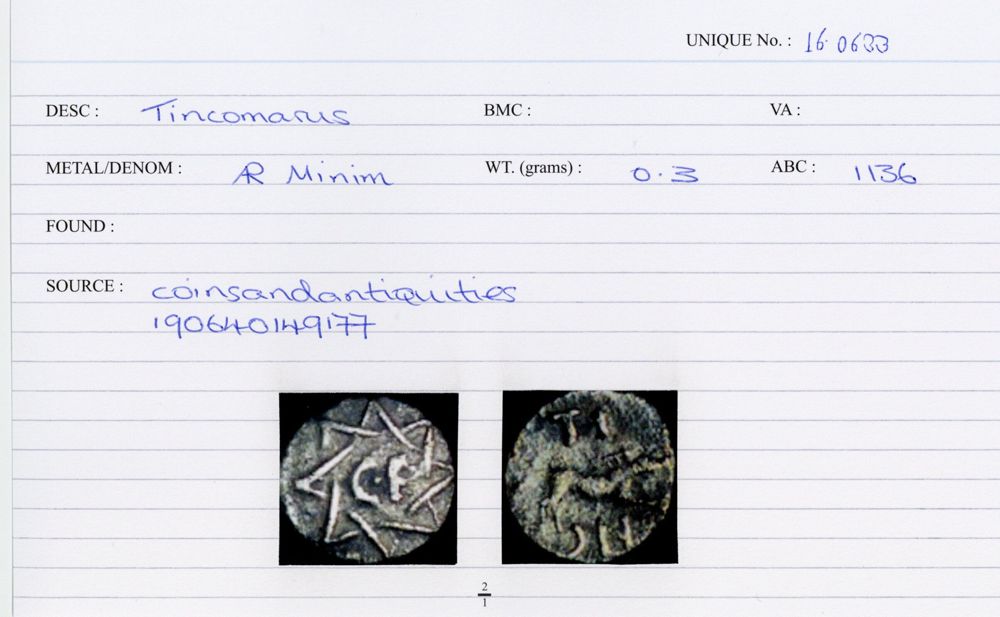 UNIQUE No. : 16.0633
DESC : Tincomarus BMC : VA :
METAL/DENOM : AR Minim WT. (grams) : 0.3 ABC : 1136
FOUND :
SOURCE : coinsandantiquities
190640149177
2
1